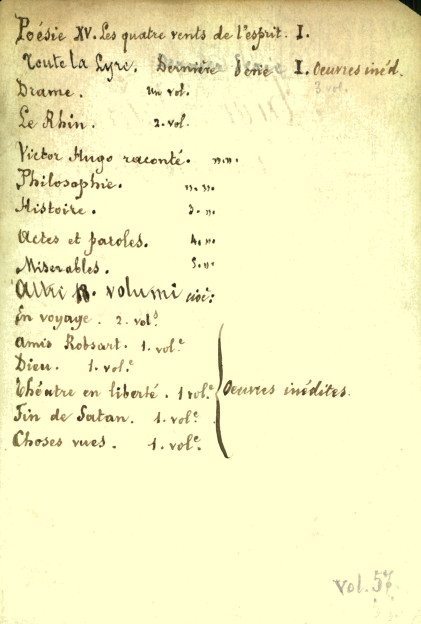 Poésie XV. Les quatre vents de l'esprit. I.
Toute la Lyre. Dernière Série I. Oeuvres inéd.
3 vol.
Drame. un vol.
Le Rhin. 2. vol.
Victor Hugo raconté. ”.”.
Philosophie. ”.”.
Histoire. 3. ”.
Actes et paroles. 4. ”.
Miserables. 5. ”.
Altri volumi cioè:
En voyage. 2. vol.
Amis Robsart. 1. vol.e
Dieu. 1. vol.e
Théatre en liberté. 1 vol.e
Oeuvres inédites.
Fin de Satan. 1. vol.e
Choses vues. 1. vol.e
Vol. 57.